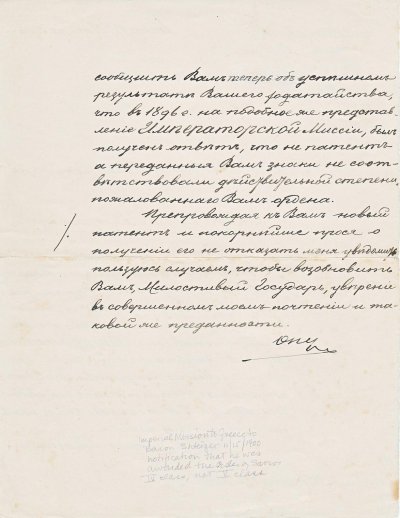 сообщить Вамъ теперь объ успѣшномъ
результатѣ Вашего ходатайства,
что въ 1896 г. на подобное же представ-
леніе Императорской Миссіи, былъ
полученъ отвѣтъ, что не патентъ
а переданные Вамъ знаки не соот-
вѣтствовали дѣйствительной степени
пожалованнаго Вамъ ордена.
Препровождая къ Вамъ новый
патентъ и покорнѣйше прося о
полученіи его не отказать меня увѣдомить
пользуюсь случаемъ, чтобы возобновить
Вамъ, Милостивый Государь, увѣреніе
въ совершенномъ моемъ почтеніи и та-
ковой же преданности.
Ону
Imperial Mission to Greece to
Baron Steiger 1900
notification that he was
awarded the order
IV class, not V class